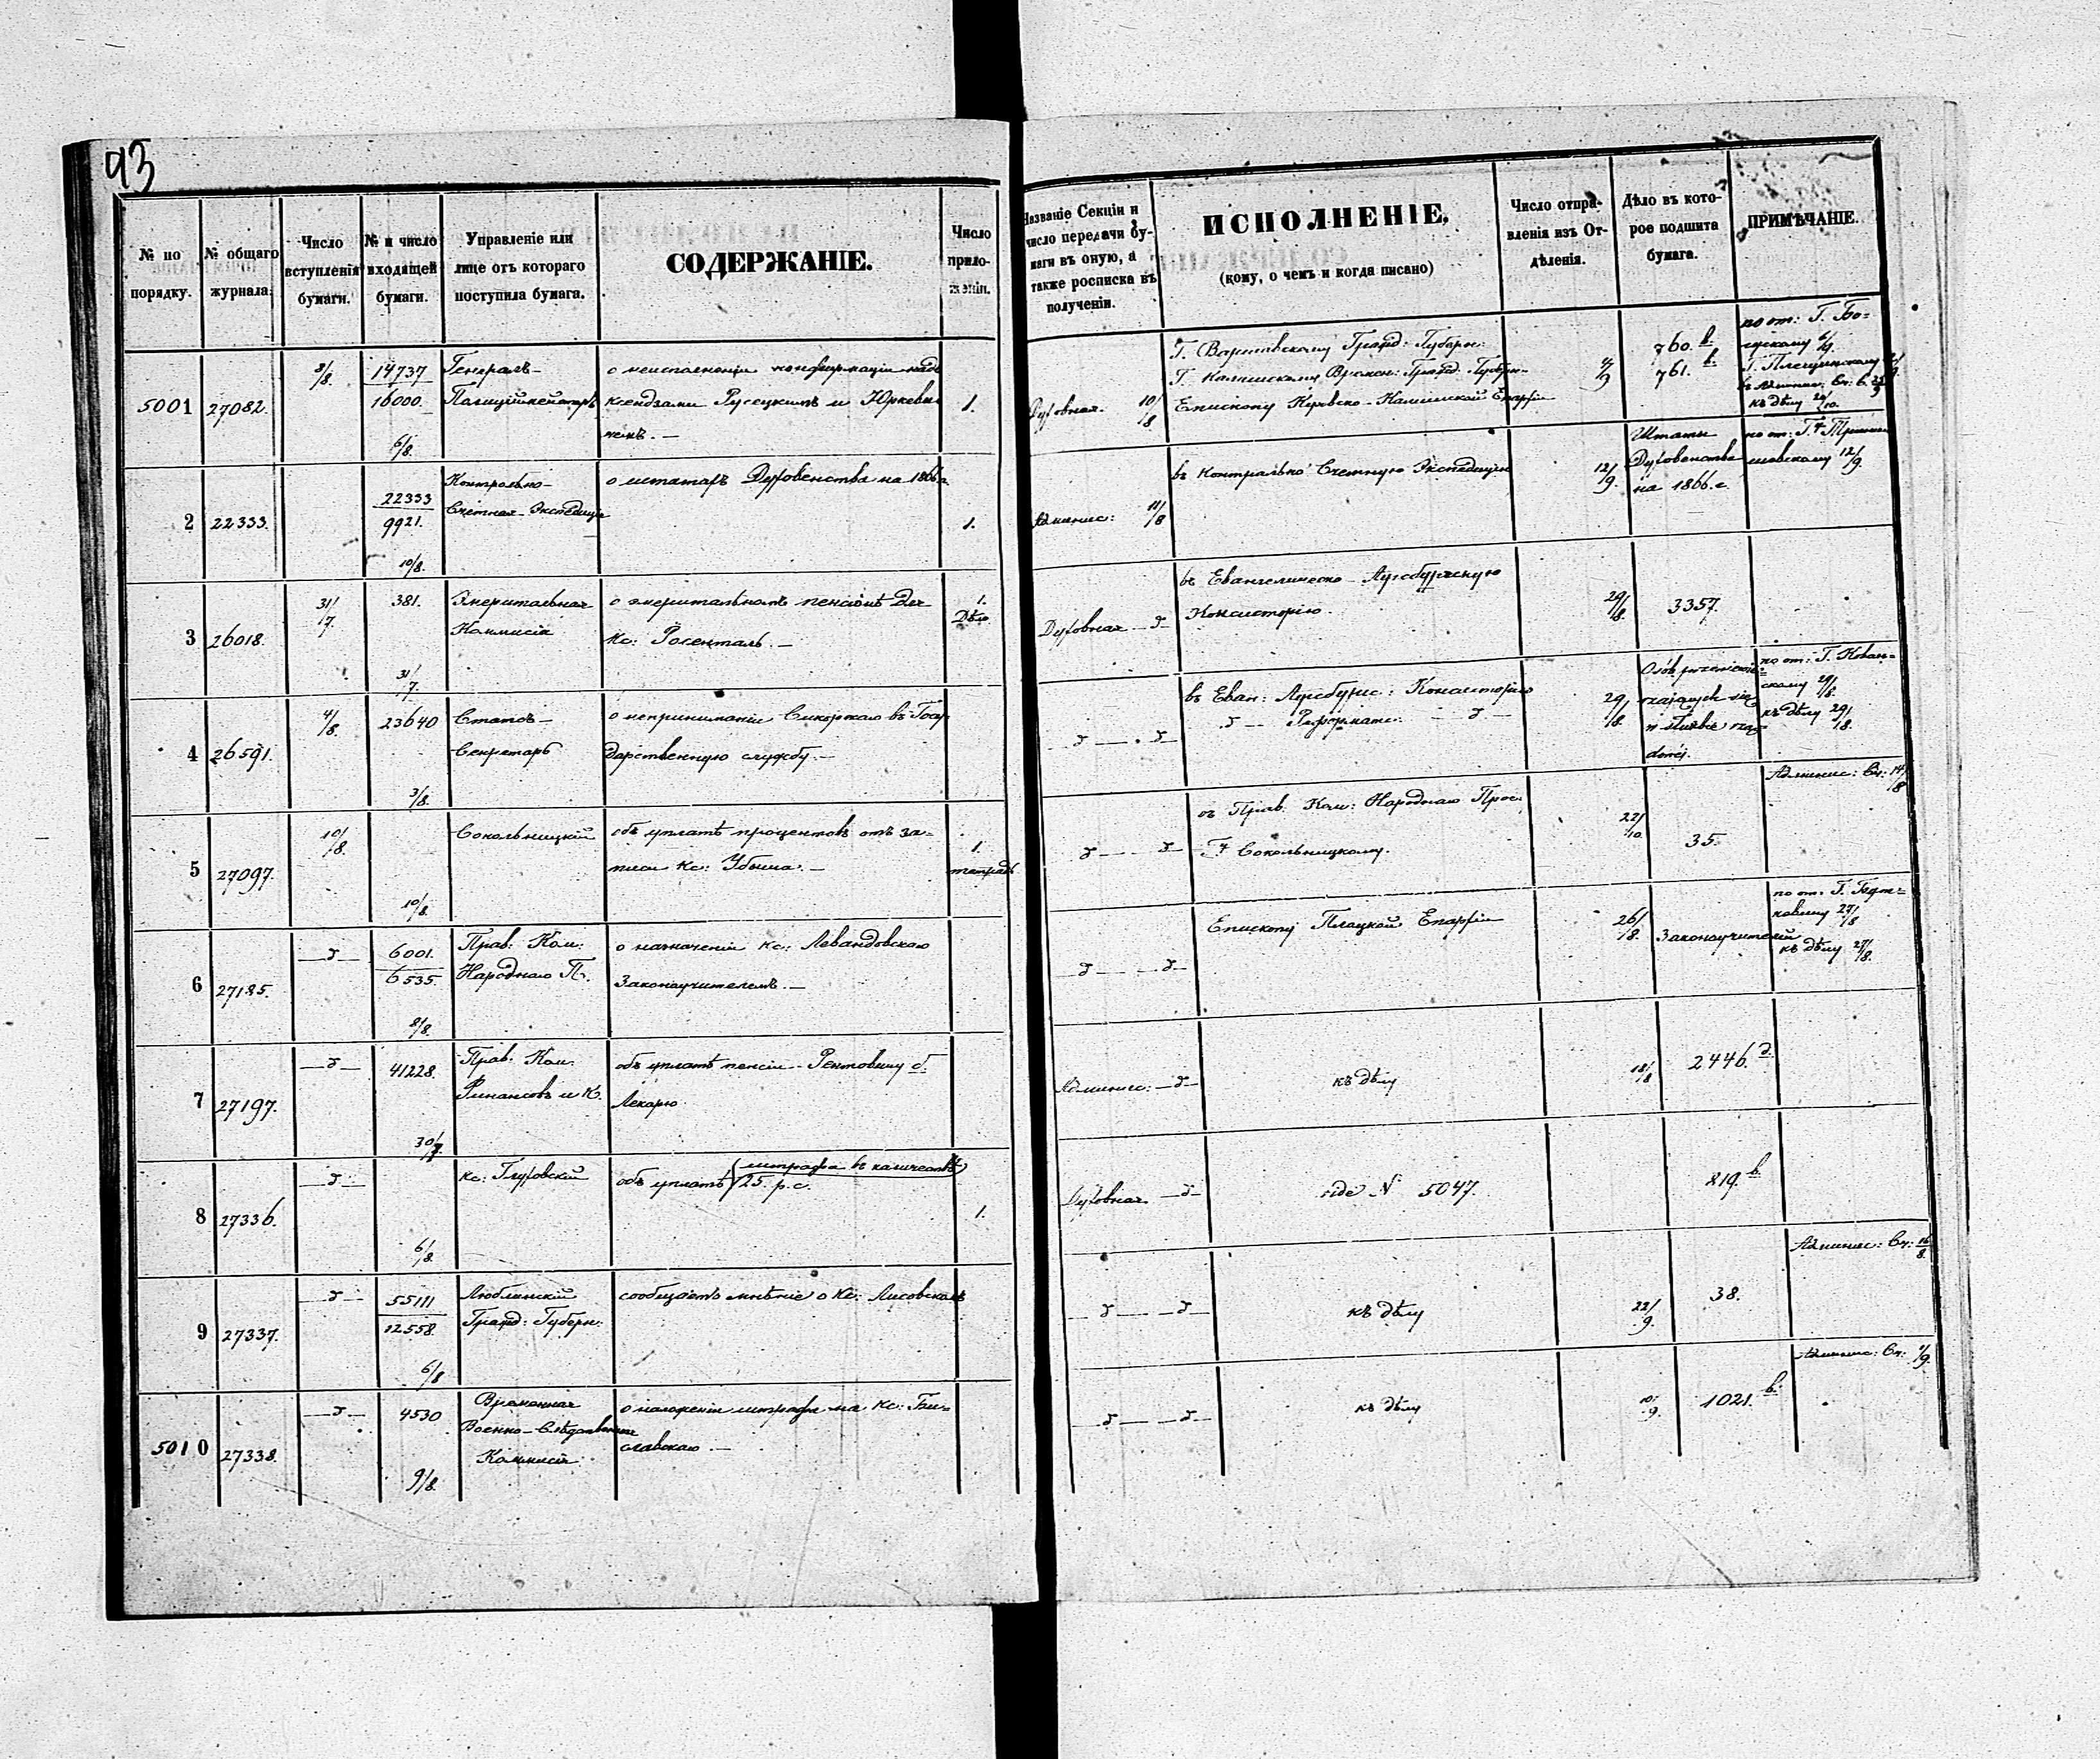 93
№ по порядку.
№ общаго журнала.
Число вступленія бумаги.
№ и число входящей бумаги.
Управленіе или лице отъ котораго поступила бумага.
СОДЕРЖАНІЕ.
Число прило-
Названіе Секціи и число передачи бумаги въ оную, а также росписка въ полученіи.
ИСПОЛНЕНІЕ,
(кому, о чемъ и когда писано)
Число отправленія изъ Отдѣленія.
Дѣло въ которое подшита бумага.
ПРИМѢЧАНІЕ.
5001 27082. 8/8. 14737 Генералъ- о неисполненіи конфирмаціи надъ
16000. Полиціймейстеръ ксендзами Русецкимъ и Юркеви- 1.
6/8. чемъ. —
Духовная. 10/8
Г. Варшавскому Гражд: Губерн:
Г. Калишскому Времен: Гражд. Губерн-
Епископу Куявско-Калишской Епархіи
760. в.
761. в.
по от: Г. Бо-
къ дѣлу 20/10.
2 22333. 22333 Контрольно- о штатахъ Духовенства на 1866 г.
9921. Счетная Экспедиція 1.
10/8.
Админис: 11/8
въ Контрольно Счетную Экспедицію
12/9.
Штаты
Духовенства
на 1866. г.
по от: Г.
шевскому 12/9.
3 26018. 31/7. 381. Эмеритальная о эмеритальномъ пенсіонѣ Для 1.
Коммисія Кс: Розенталь. — Дѣло
31/7.
Духовная — д —
въ Евангелическо-Аугсбургскую
Консисторію.
29/8. 3357.
4 26591. 4/8. 23640 Статсъ- о непринятіи Сикорскаго въ Госу-
Секретарь дарственную службу. —
3/8.
— д — . — д —
въ Еван: Аугсбургс: Консисторію
— д — Реформатс: — д —
29/8.
по от: Г. Кован-
скому 29/8.
къ дѣлу 29/8.
5 27097. 10/8. Сокольницкій объ уплатѣ процентовъ отъ за- 1.
писи Кс: Убыша. — тетрадь
10/8.
— д — — д —
въ Прав. Ком: Народнаго Прос.
Гу Сокольницкому.
22/10. 35.
Админис: Сч: 14/8
6 27185. — д — 6001. Прав: Ком: о назначеніи кс: Левандовскаго
6535. Народнаго П. Законоучителемъ. —
8/8.
— д — — д —
Епископу Плоцкой Епархіи
26/8. Законоучителей
къ дѣлу 27/8.
7 27197. — д — 41228. Прав: Ком: объ уплатѣ пенсіи Рентовичу б.
Финансовъ и К. Лекарю
30/7.
Админис: — д —
къ дѣлу
18/8 2446. д.
8 27336. — д — кс: Глуховскій объ уплатѣ (штрафа въ количествѣ)
25. р. с.
1.
6/8.
Духовная — д —
vide № 5047.
819. в.
9 27337. — д — 55111 Люблинскій сообщаетъ мнѣніе о Кс: Лисовскомъ
12558. Гражд: Губерн:
6/8
— д — — д —
къ дѣлу
22/9. 38.
Админис: Сч: 16/8.
5010 27338. — д — 4530 Временная о наложеніи штрафа на Кс: Би-
Военно-Слѣдственная славскаго. —
9/8. Коммисія
— д — — д —
къ дѣлу
10/9. 1021. в.
Админис: Сч: 1/9.